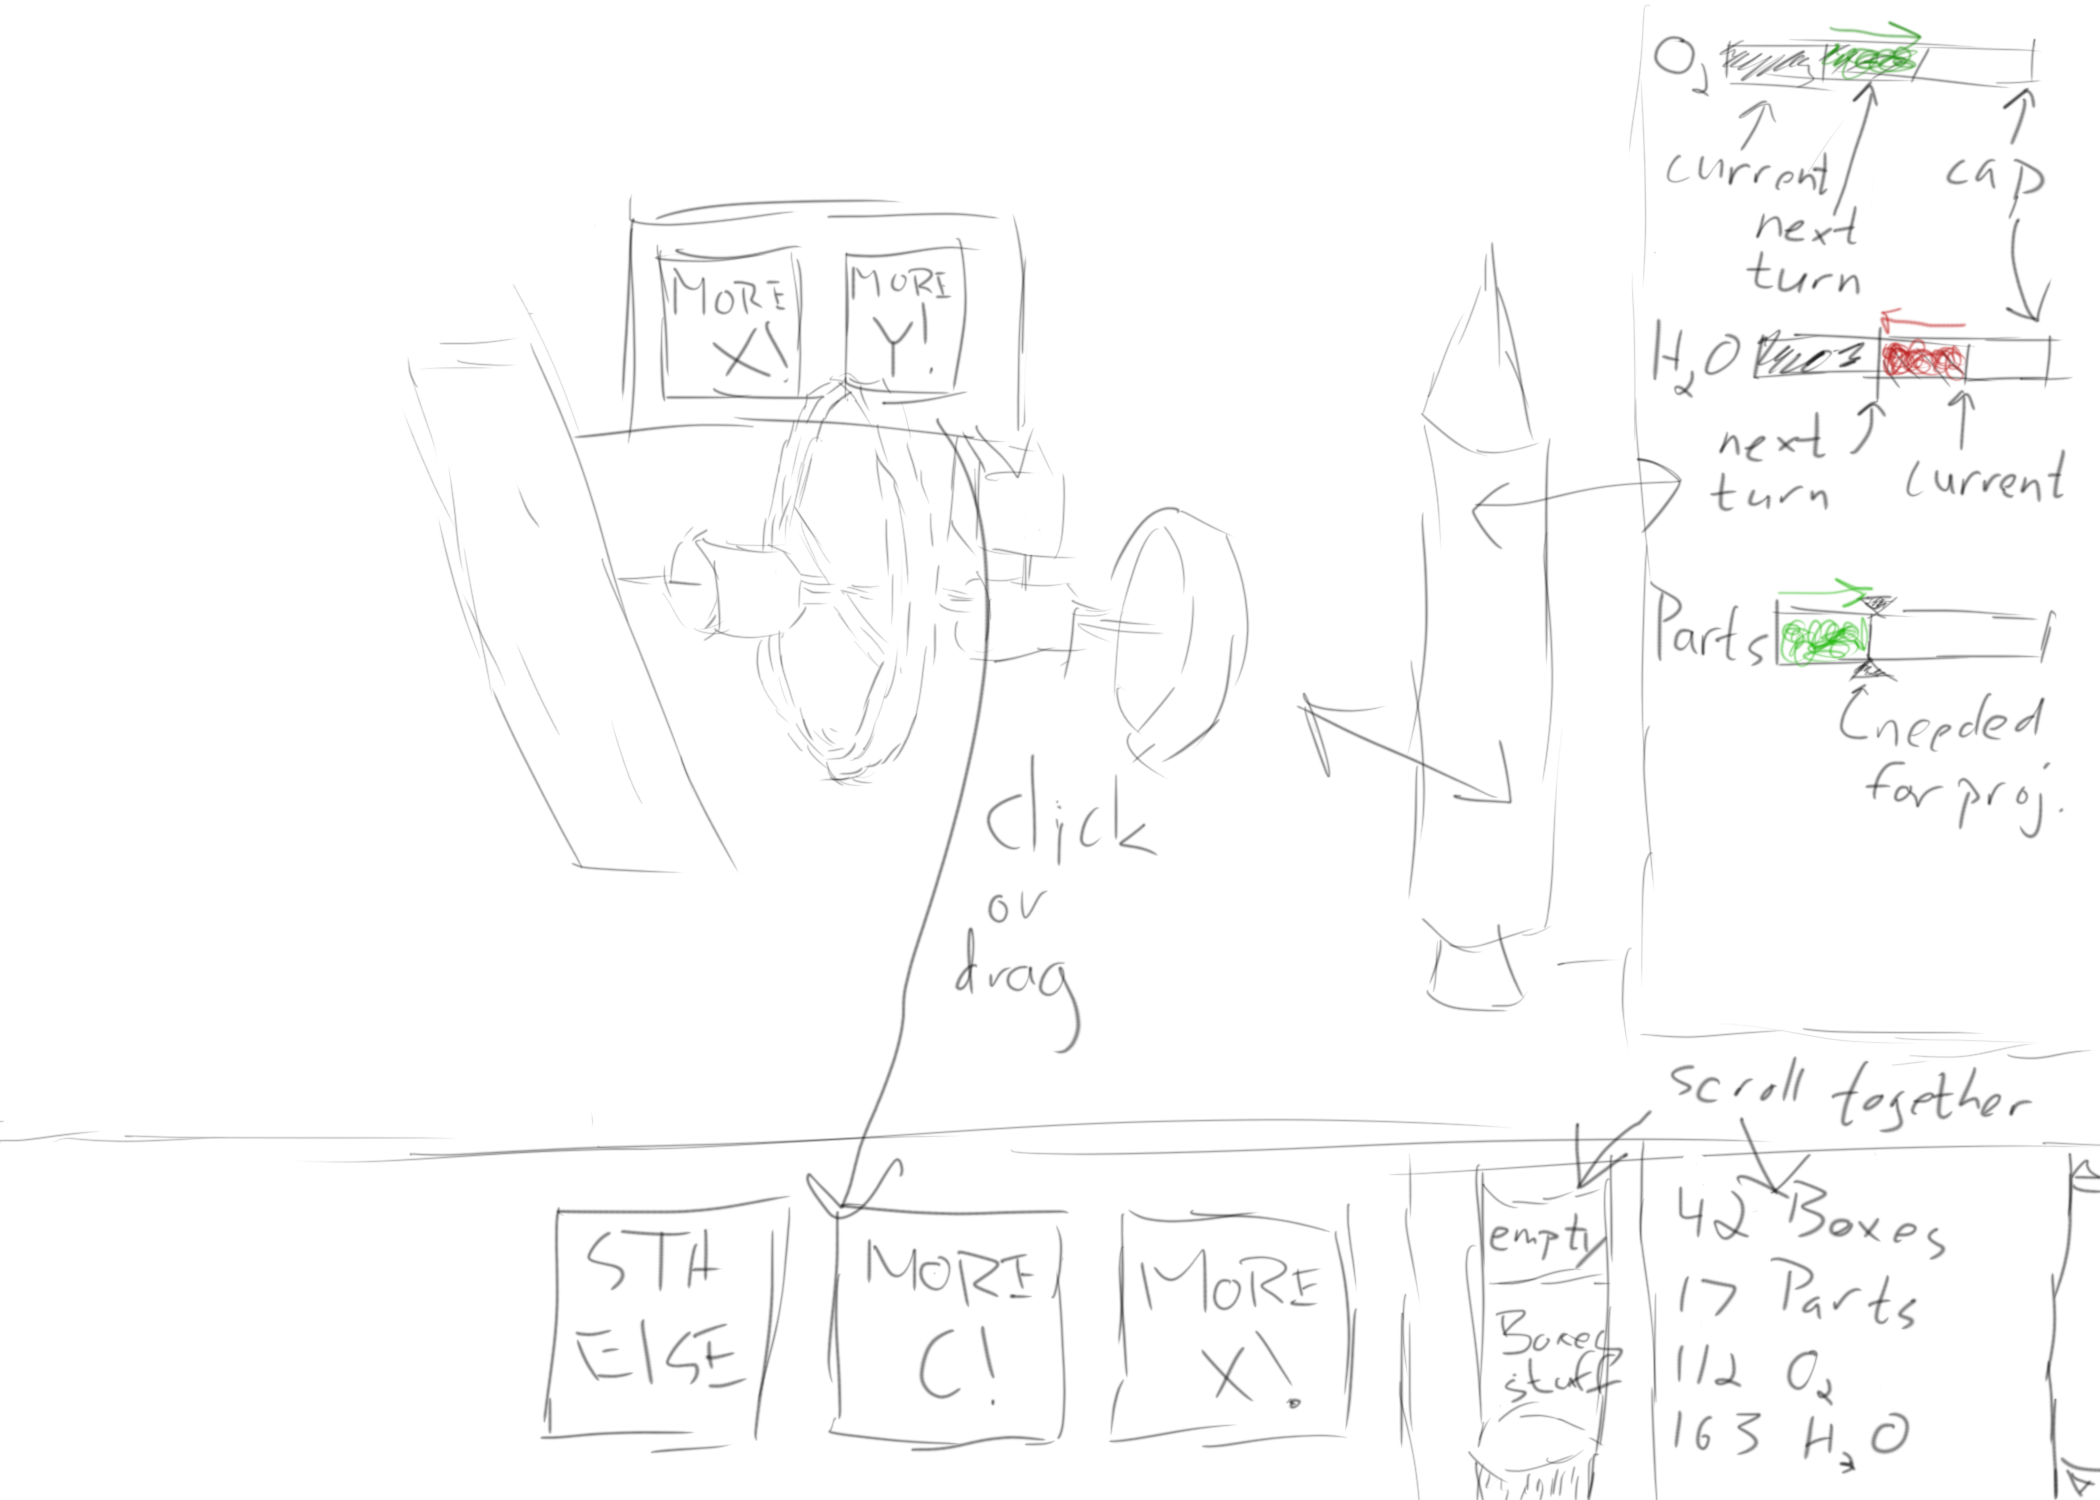 O2
current
cap
next
turn
H2O
next
turn
current
Parts
needed
for proj.
MORE
X!
MORE
Y!
click
or
drag
scroll together
STH
ELSE
MORE
C!
MORE
X!
empty
Boxed
stuff
42 Boxes
17 Parts
112 O2
163 H2O